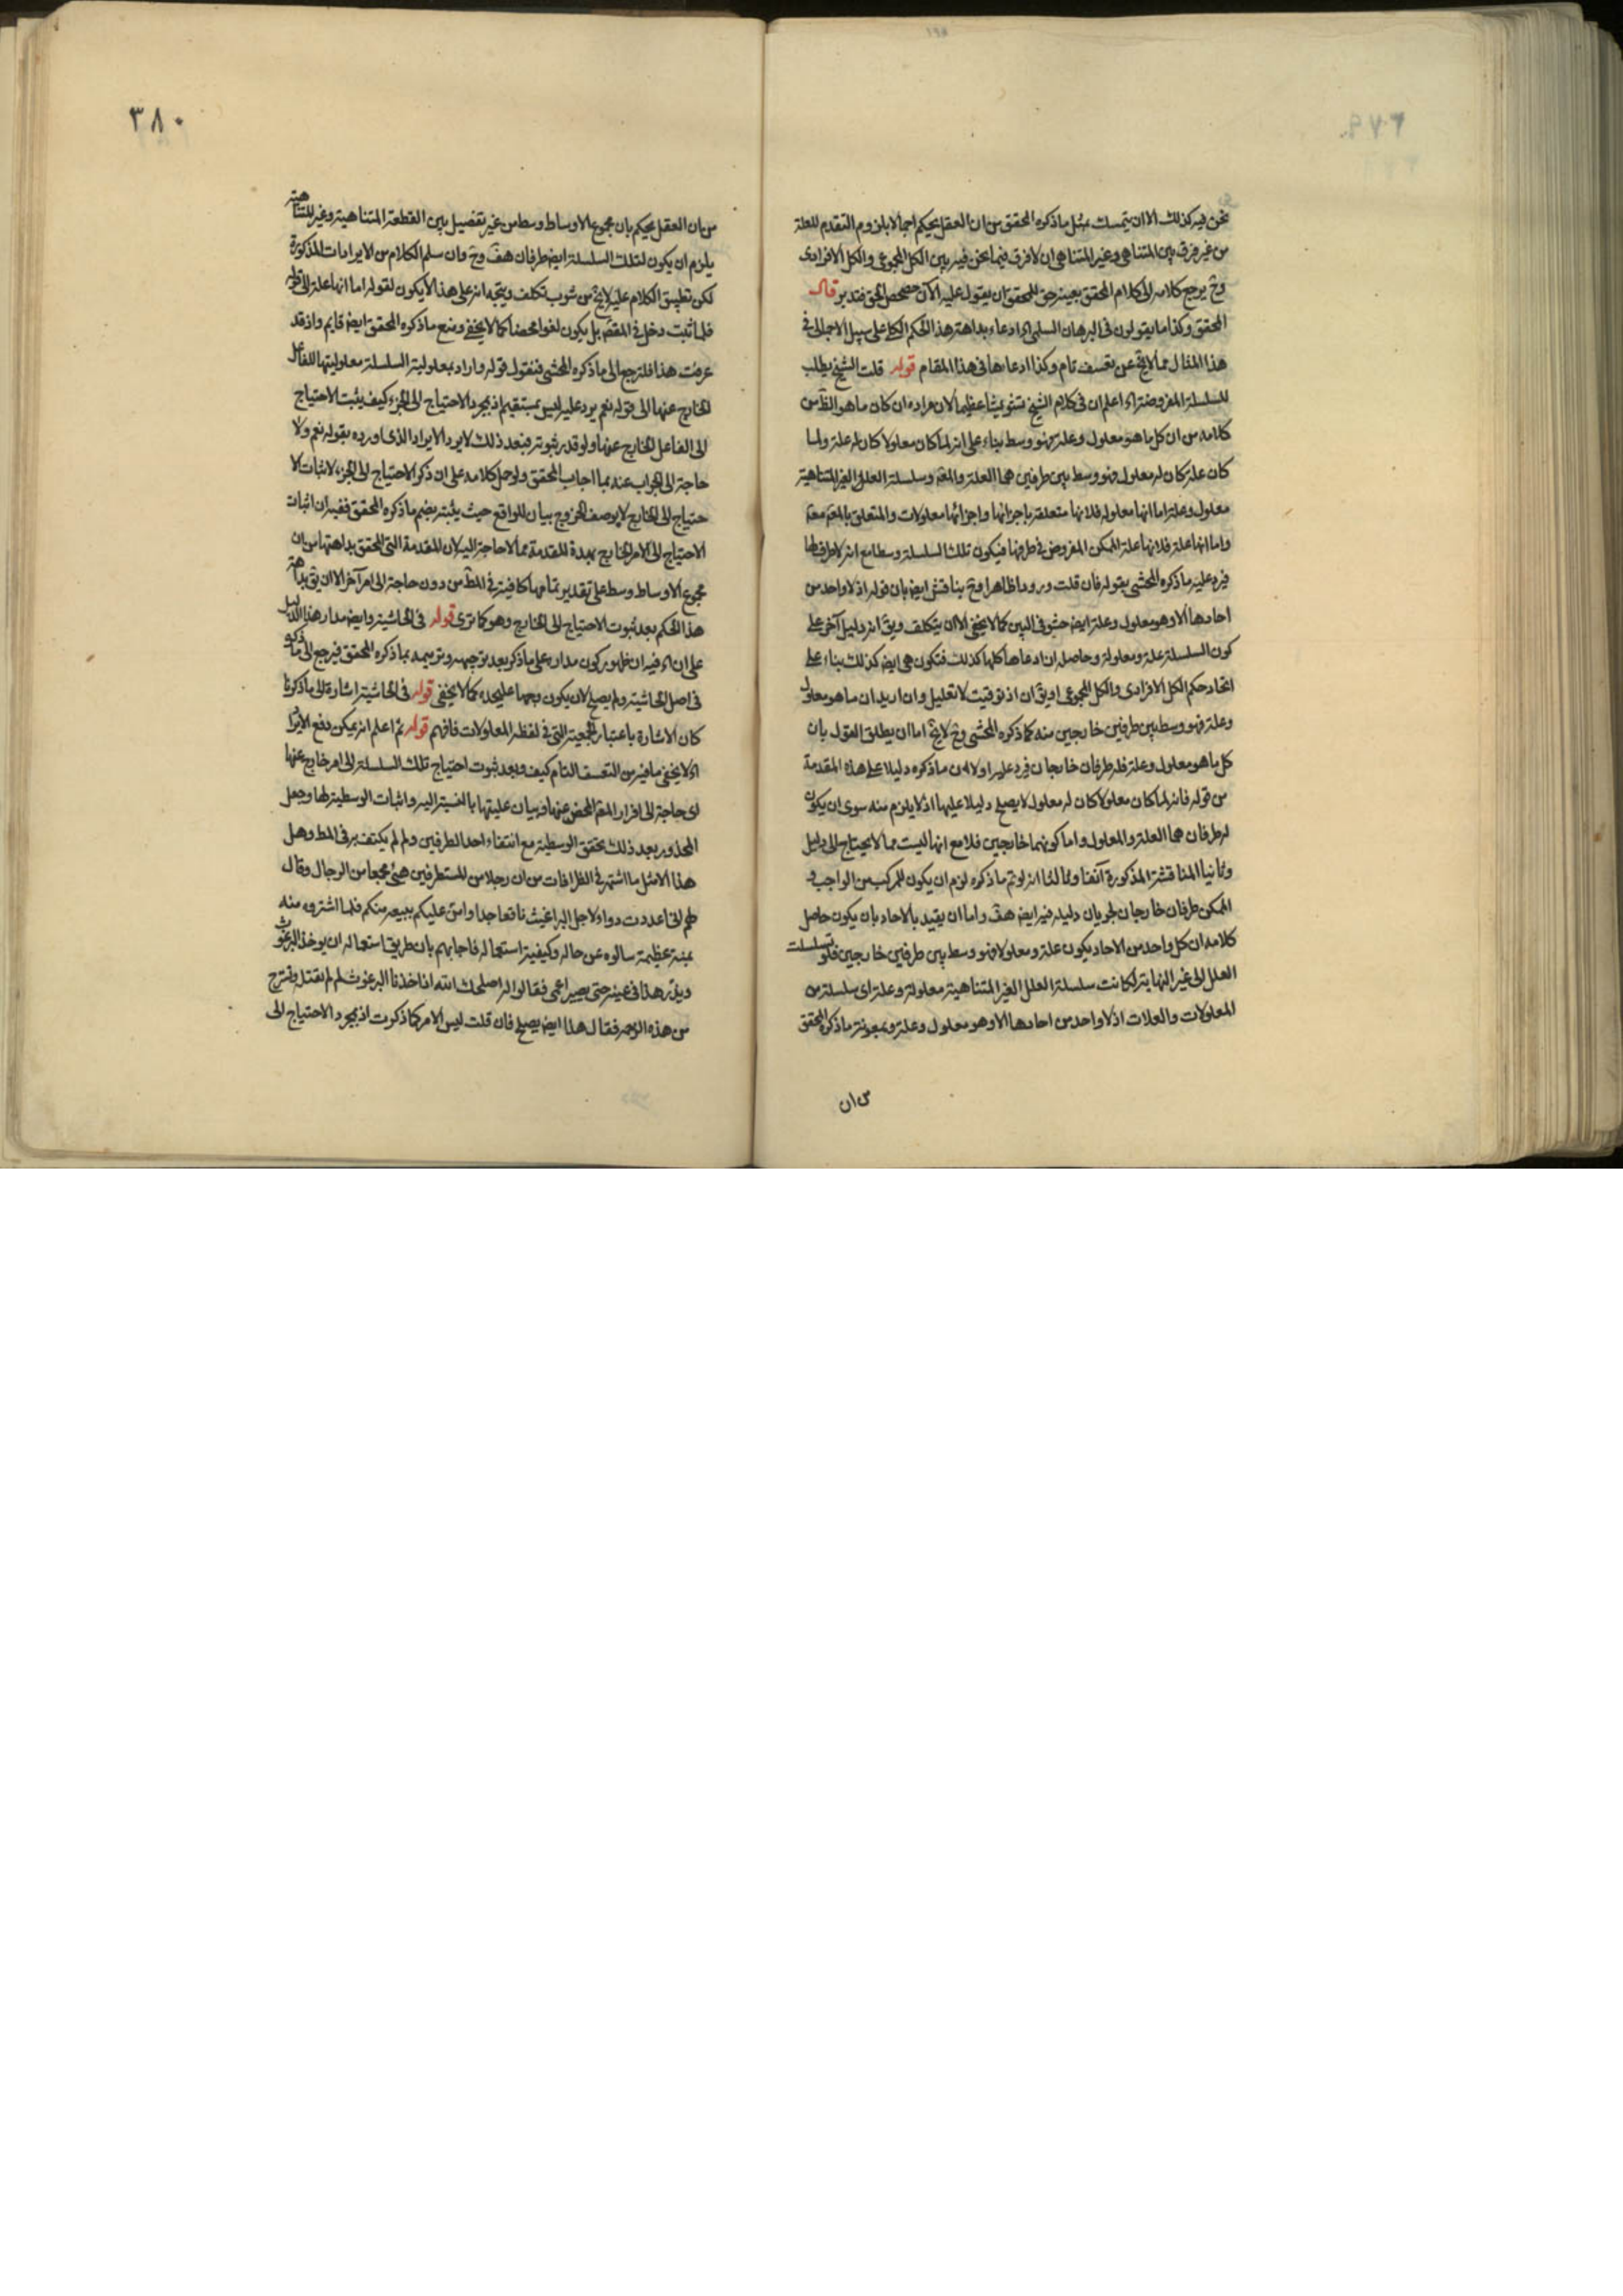 نحن فيه كذلك الا ان يتمسك بمثل ما ذكره المحقق من ان العقل يحكم اجمالا بلزوم التقدم للعلة
من غير فرق بين المتناهى وغير المتناهى ان لا فرق فيما نحن فيه بين الكل المجموعى والكل الافرادى
وح يرجع كلامه الى كلام المحقق بعينه حق للمحقق ان يقول عليه الآن حصحص الحق فتدبر قال
المحقق وكذا ما يقولون فى البرهان السلمى اه ادعاء بداهة هذا الحكم الكلى على سبيل الاجمال فى
هذا المثال مما لا يخ عن تعسف تام وكذا ادعاءها فى هذا المقام قوله قلت الشيخ يطلب
للسلسلة المفروضة اه اعلم ان فى كلام الشيخ تشويشا عظيما لان مراده ان كان ما هو الظ من
كلامه من ان كل ما هو معلول وعلة فهو وسط بناء على انه لما كان معلولا كان له علة ولما
كان علة كان له معلول فهو وسط بين طرفين هما العلة والمعه وسلسلة العلل الغير المتناهية
معلول وعلة اما انها معلوله فلانها متعلقة باجزائها واجزائها معلولات والمتعلق بالمعه معه
واما انها علة فلانها علة الممكن المفروض فى طرفها فيكون تلك السلسلة وسطا مع انه لا طرف لها
فيرد عليه ما ذكره المحشى بقوله فان قلت ورودا ظاهرا وح يناقش ايض بان قوله اذ لا واحد من
احادها الا وهو معلول وعلة ايض حشو فى البين كما لا يخفى الا ان يتكلف ويق انه دليل آخر على
كون السلسلة علة ومعلولة وحاصله ان ادعاها كلها كذلك فتكون هى ايض كذلك بناء على
اتحاد حكم الكل الافرادى والكل المجموعى او يق ان اذ توقيت لا تعليل وان اريد ان ما هو معلول
وعلة فهو وسط بين طرفين خارجين منه كما ذكره المحشى وح لا يخ اما ان يطلق القول بان
كل ما هو معلول وعلة فله طرفان خارجان فيرد عليه اولا ان ما ذكره دليلا على هذه المقدمة
من قوله فانه لما كان معلولا كان له معلول لا يصلح دليلا عليها اذ لا يلزم منه سوى ان يكون
له طرفان هما العلة والمعلول واما كونهما خارجين فلا مع انها ليست مما لا يحتاج الى دليل
وثانيا المناقشة المذكورة آنفا وثالثا انه لو تم ما ذكره لزم ان يكون للمركب من الواجب و
الممكن طرفان خارجان لجريان دليله فيه ايض هف واما ان يقيد بالاحاد بان يكون حاصل
كلامه ان كل واحد من الاحاد يكون علة ومعلولا فهو وسط بين طرفين خارجين فلو تسلسلت
العلل الى غير النهاية لكانت سلسلة العلل الغير المتناهية معلولة وعلة اى سلسلة من
المعلولات والعلات اذ لا واحد من احادها الا وهو معلول وعلة وبمعونة ما ذكره المحقق
من ان
٣٨٠
من ان العقل يحكم بان مجموع الاوساط وسط من غير تفصيل بين القطعة المتناهية وغير المتناهية
يلزم ان يكون لتلك السلسلة ايض طرفان هف وح وان سلم الكلام من الايرادات المذكورة
لكن تطبيق الكلام عليه لا يخ من شوب تكلف ويتجه انه على هذا لا يكون لقوله اما انها علة الى قوله
فلما ثبت دخل فى المقص بل يكون لغوا محضا كما لا يخفى ومنع ما ذكره المحقق ايض قايم واذ قد
عرفت هذا فلنرجع الى ما ذكره المحشى فنقول قوله واراد بمعلولية السلسلة معلوليتها للفاعل
الخارج عنها الى قوله نعم يرد عليه ليس بمستقيم اذ بمجرد الاحتياج الى الجزء كيف يثبت الاحتياج
الى الفاعل الخارج عنها ولو قدر ثبوته فبعد ذلك لا يرد الايراد الذى اورده بقوله نعم ولا
حاجة الى الجواب عنه بما اجاب المحقق ولو حمل كلامه على ان ذكر الاحتياج الى الجزء لاثبات الا
حتياج الى الخارج لا بوصف الخروج بيان للواقع حيث يثبت بضم ما ذكره المحقق ففيه ان اثبات
الاحتياج الى الامر الخارج بهذه المقدمة مما لا حاجة اليه لان المقدمة التى للمحقق بداهتها من ان
مجموع الاوساط وسط على تقدير تمامها كافية فى المط من دون حاجة الى امر آخر الا ان يق بداهة
هذا الحكم بعد ثبوت الاحتياج الى الخارج وهو كما ترى قوله فى الحاشية وايض مدار هذا الدليل
على ان اه فيه ان ظهور كون مداره على ما ذكر بعد توجيهه وتتميمه بما ذكره المحقق فيرجع الى ما ذكره
فى اصل الحاشية ولم يصلح لان يكون وجها عليحده كما لا يخفى قوله فى الحاشية اشارة الى ما ذكرنا
كان الاشارة باعتبار الجمعية التى فى لفظ المعلولات فافهم قوله ثم اعلم انه يمكن دفع الايراد
اه لا يخفى ما فيه من التعسف التام كيف وبعد ثبوت احتياج تلك السلسلة الى امر خارج عنها
اى حاجة الى افراز المعه المحض عنها وبيان عليتها بالنسبة اليه واثبات الوسطية لها وجعل
المحذور بعد ذلك تحقق الوسطية مع انتفاء احد الطرفين ولم لم يكتف به فى المط وهل
هذا الا مثل ما اشتهر فى الظرافات من ان رجلا من المستطرفين هيئ مجمعا من الرجال وقال
لهم انى اعددت دواء لاجل البراغيث نافعا جدا وامن عليكم ببيعه منكم فلما اشتروه منه
بمنة عظيمة سالوه عن حاله وكيفية استعماله فاجابهم بان طريق استعماله ان يوخذ البرغوث
ويذر هذا فى عينه حتى يصير اعمى فقالوا له اصلحك الله اذا اخذنا البرغوث لم لم نقتله ونسترح
من هذه الزحمة فقال هذا ايض يصلح فان قلت ليس الامر كما ذكرت اذ بمجرد الاحتياج الى